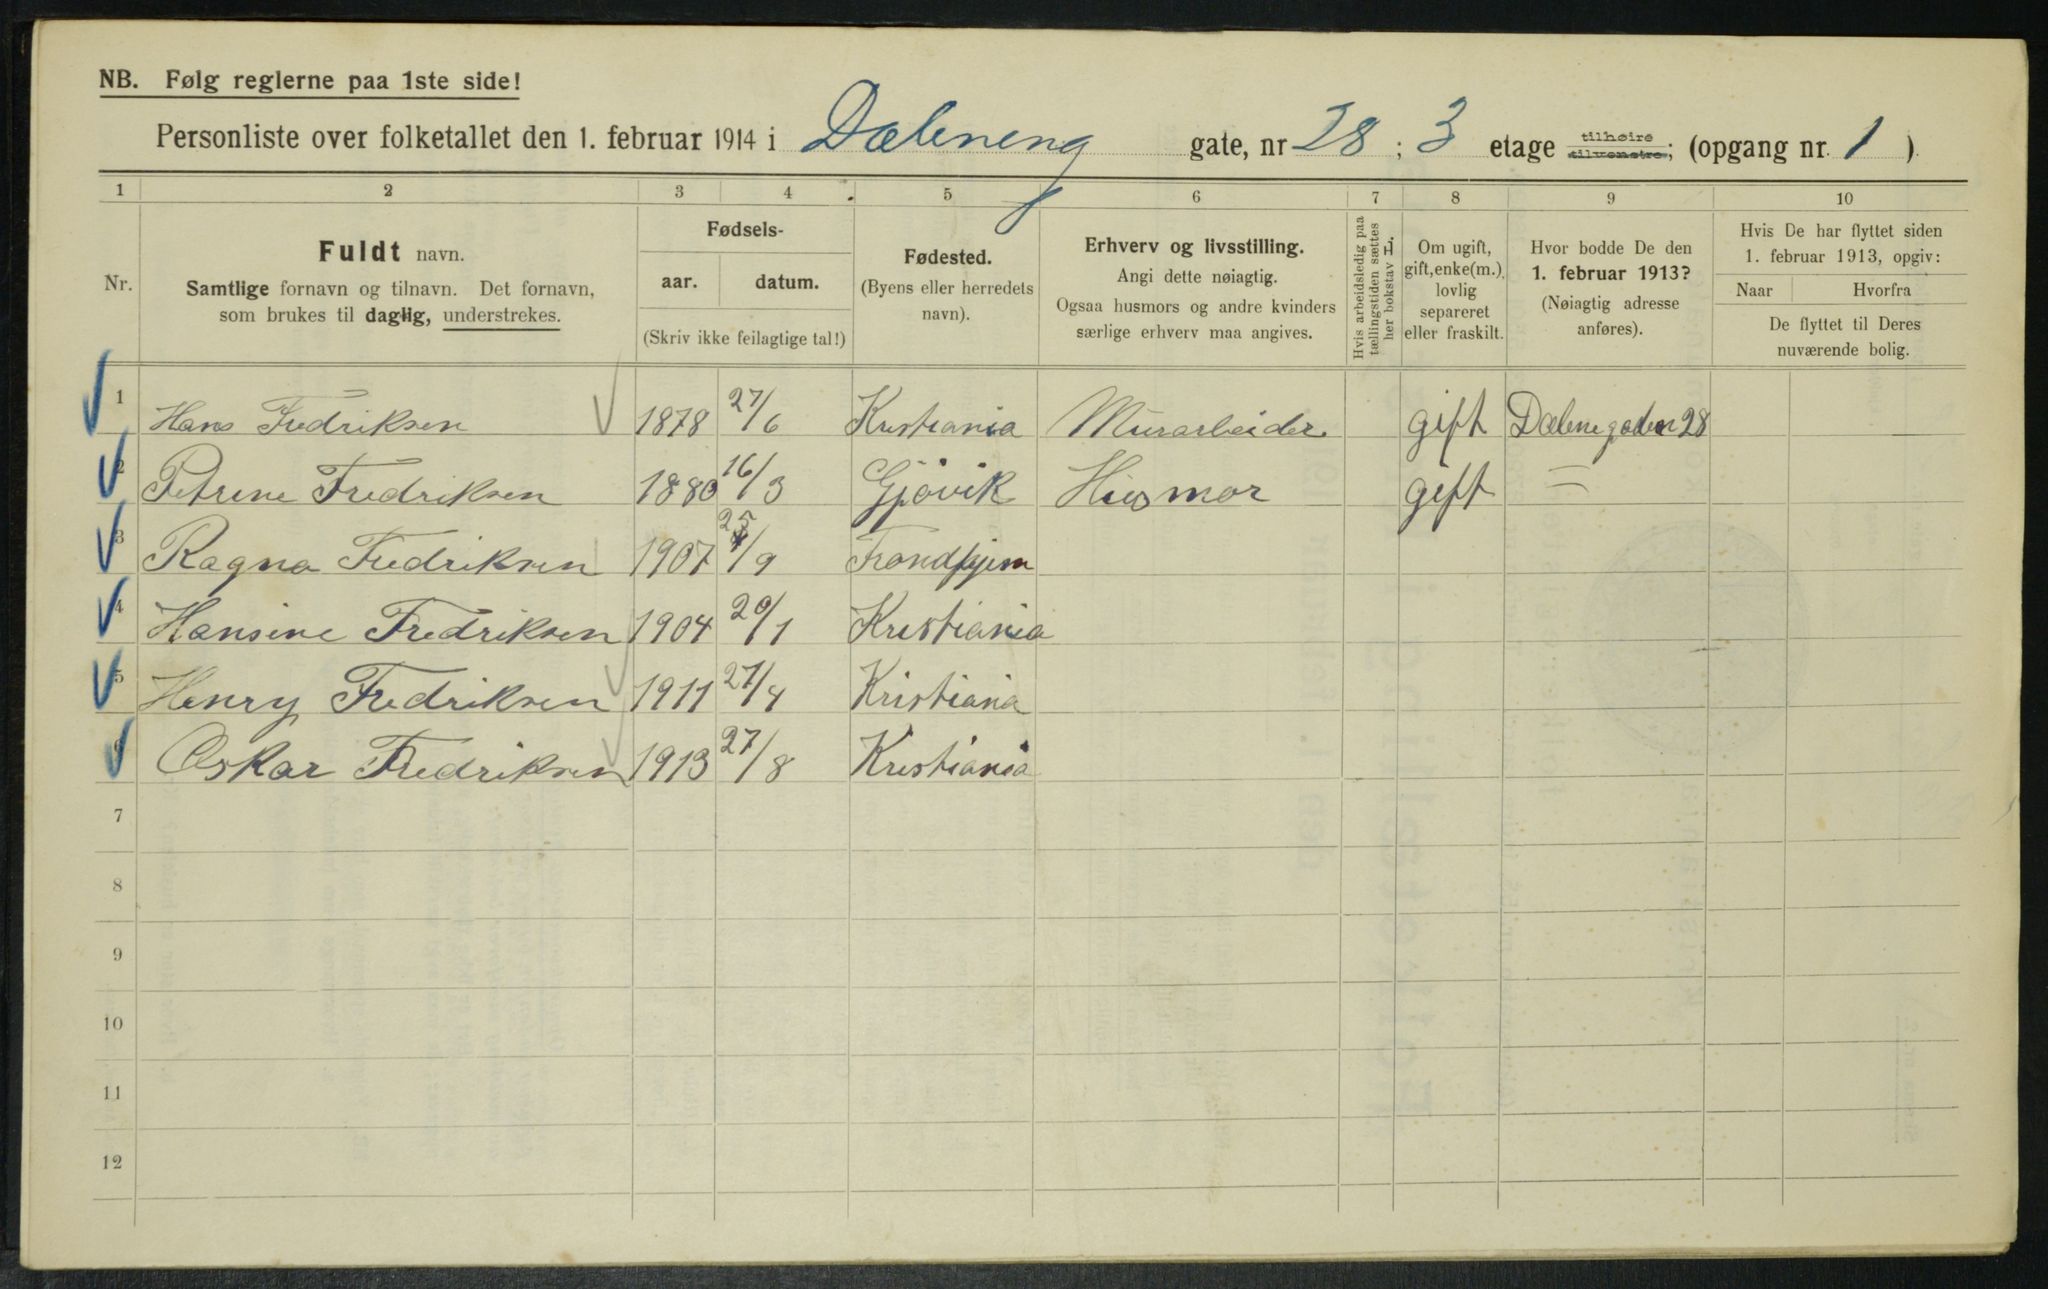 NB. Følg reglerne paa 1ste side!
Personliste over folketallet den 1. februar 1914 i Dæleneng gate, nr 28 ; 3 etage tilhøire tilvenstre; (opgang nr. 1 )
1 2 3 4 5 6 7 8 9 10
Nr.
Fuldt navn.
Samtlige fornavn og tilnavn. Det fornavn,
som brukes til daglig, understrekes.
Fødsels-
aar. datum.
(Skriv ikke feilagtige tal!)
Fødested.
(Byens eller herredets
navn).
Erhverv og livsstilling.
Angi dette nøiagtig.
Ogsaa husmors og andre kvinders
særlige erhverv maa angives.
Hvis arbeidsledig paa
tællingstiden sættes
her bokstav L.
Om ugift,
gift, enke(m.),
lovlig
separeret
eller fraskilt.
Hvor bodde De den
1. februar 1913?
(Nøiagtig adresse
anføres).
Hvis De har flyttet siden
1. februar 1913, opgiv:
Naar Hvorfra
De flyttet til Deres
nuværende bolig.
1 Hans Fredriksen 1878 27/6 Kristiania Murarbeider gift Dælenegaden 28
2 Petrine Fredriksen 1880 16/3 Gjøvik Husmor gift =
3 Ragna Fredriksen 1907 25/9 Trondhjem
4 Hansine Fredriksen 1904 20/1 Kristiania
5 Henry Fredriksen 1911 27/4 Kristiania
6 Oskar Fredriksen 1913 27/8 Kristiania
7
8
9
10
11
12